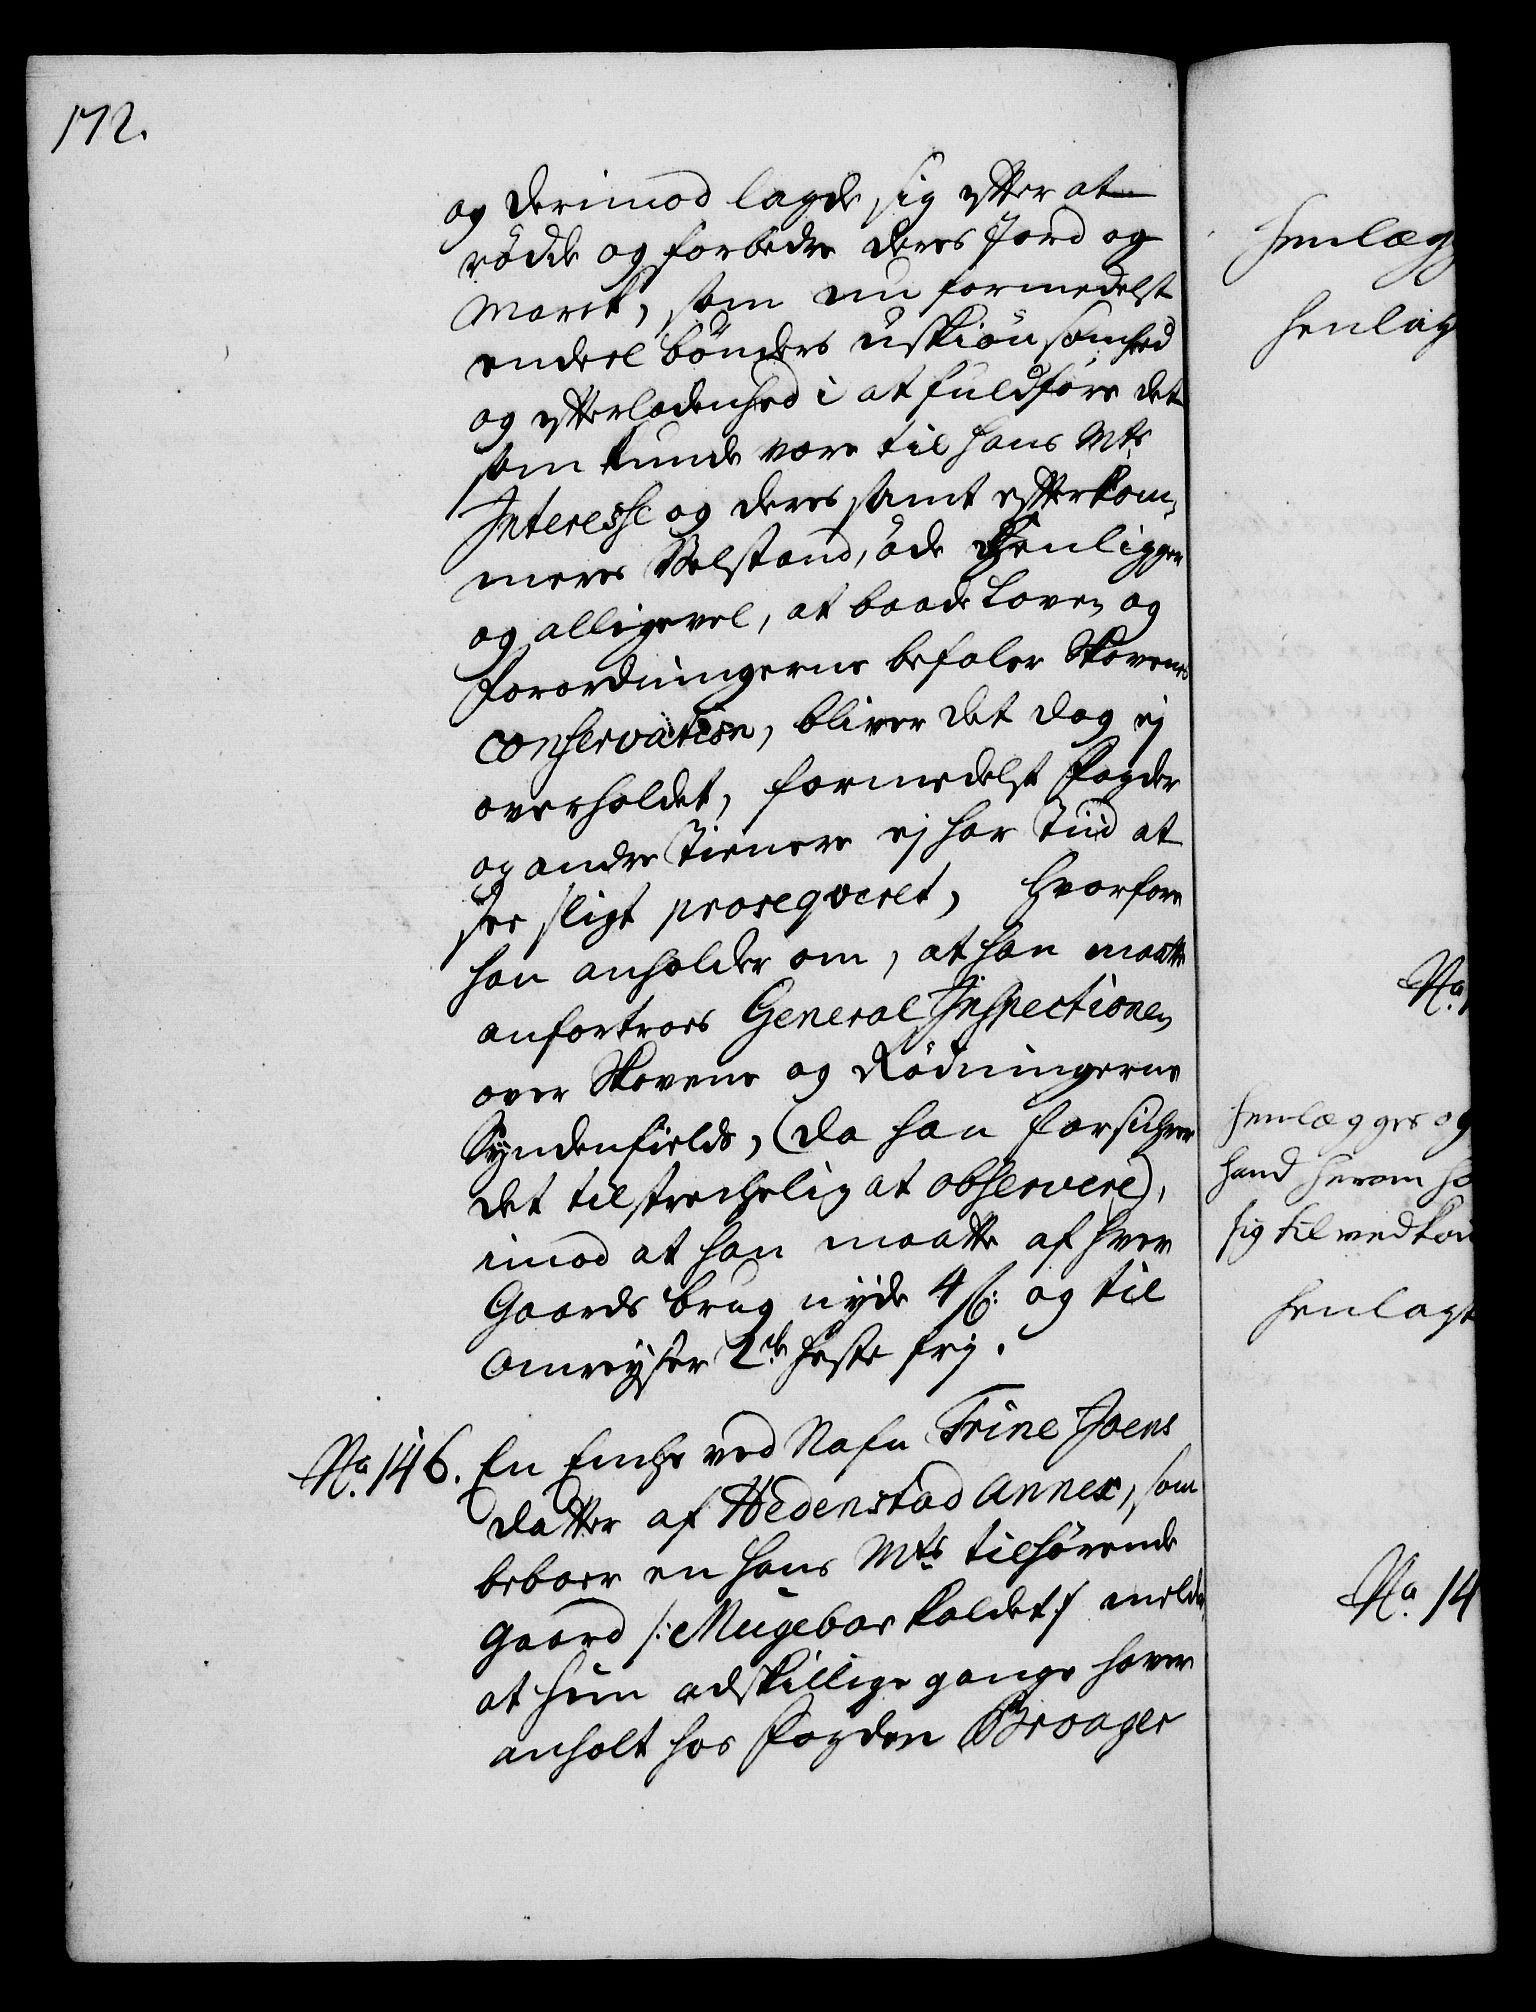 172.
og derimod lagde sig efter at
rødde og forbedre deres Jord og
March, som nu formedelst
endeel bønders uskiønsomhed
og efterladenhed i at fuldføre det
som kunde være til hans Mts
Interesse og deres samt efterkom,
meres Velstand, øde henligger
og alligevel, at baade Loven og
Forordningerne befaler Skovenes
conservation, bliver det dog ej
overholdet, formedelst Fogder
og andre Tienere ej har Tiid at
see sligt proseqveret, hvorfore
han anholder om, at han maatte
anfortroes General Inspectionen
over Skovene og Rødningerne
Syndenfields, (da han forsichrer
det tilstrechelig at observere),
imod at han maatte af hver
Gaards brug nyde 4 ß: og til
Omreyser 2de heste frj.
No. 146. En Enche ved Nafn Trine Joens
datter af Hedenstad Annex, som
beboer en hans Mts tilhørende
gaard /: Mugebar kaldet :/ melder
at hun adskillige gange haver
anholt hos Fogden Broager
henlæg
henlag
No.
henlægges og
hand herom
sig til vedkom
henlagt
No. 14